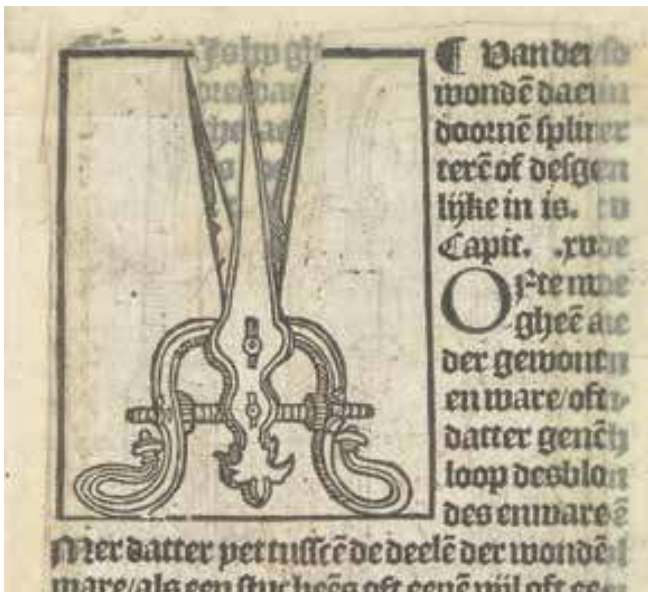 ¶ Van der
wondē daer in
doornē splinter
terē of desge
lijke in is.
Capit. .xv
Ofte
gheē a
der gewonten
en ware/oft
datter genē
loop des blo
des en ware ē
Mer datter yet tusscē de deelē der wondē
ware/als een stuc beēs oft eenē pijl oft ee